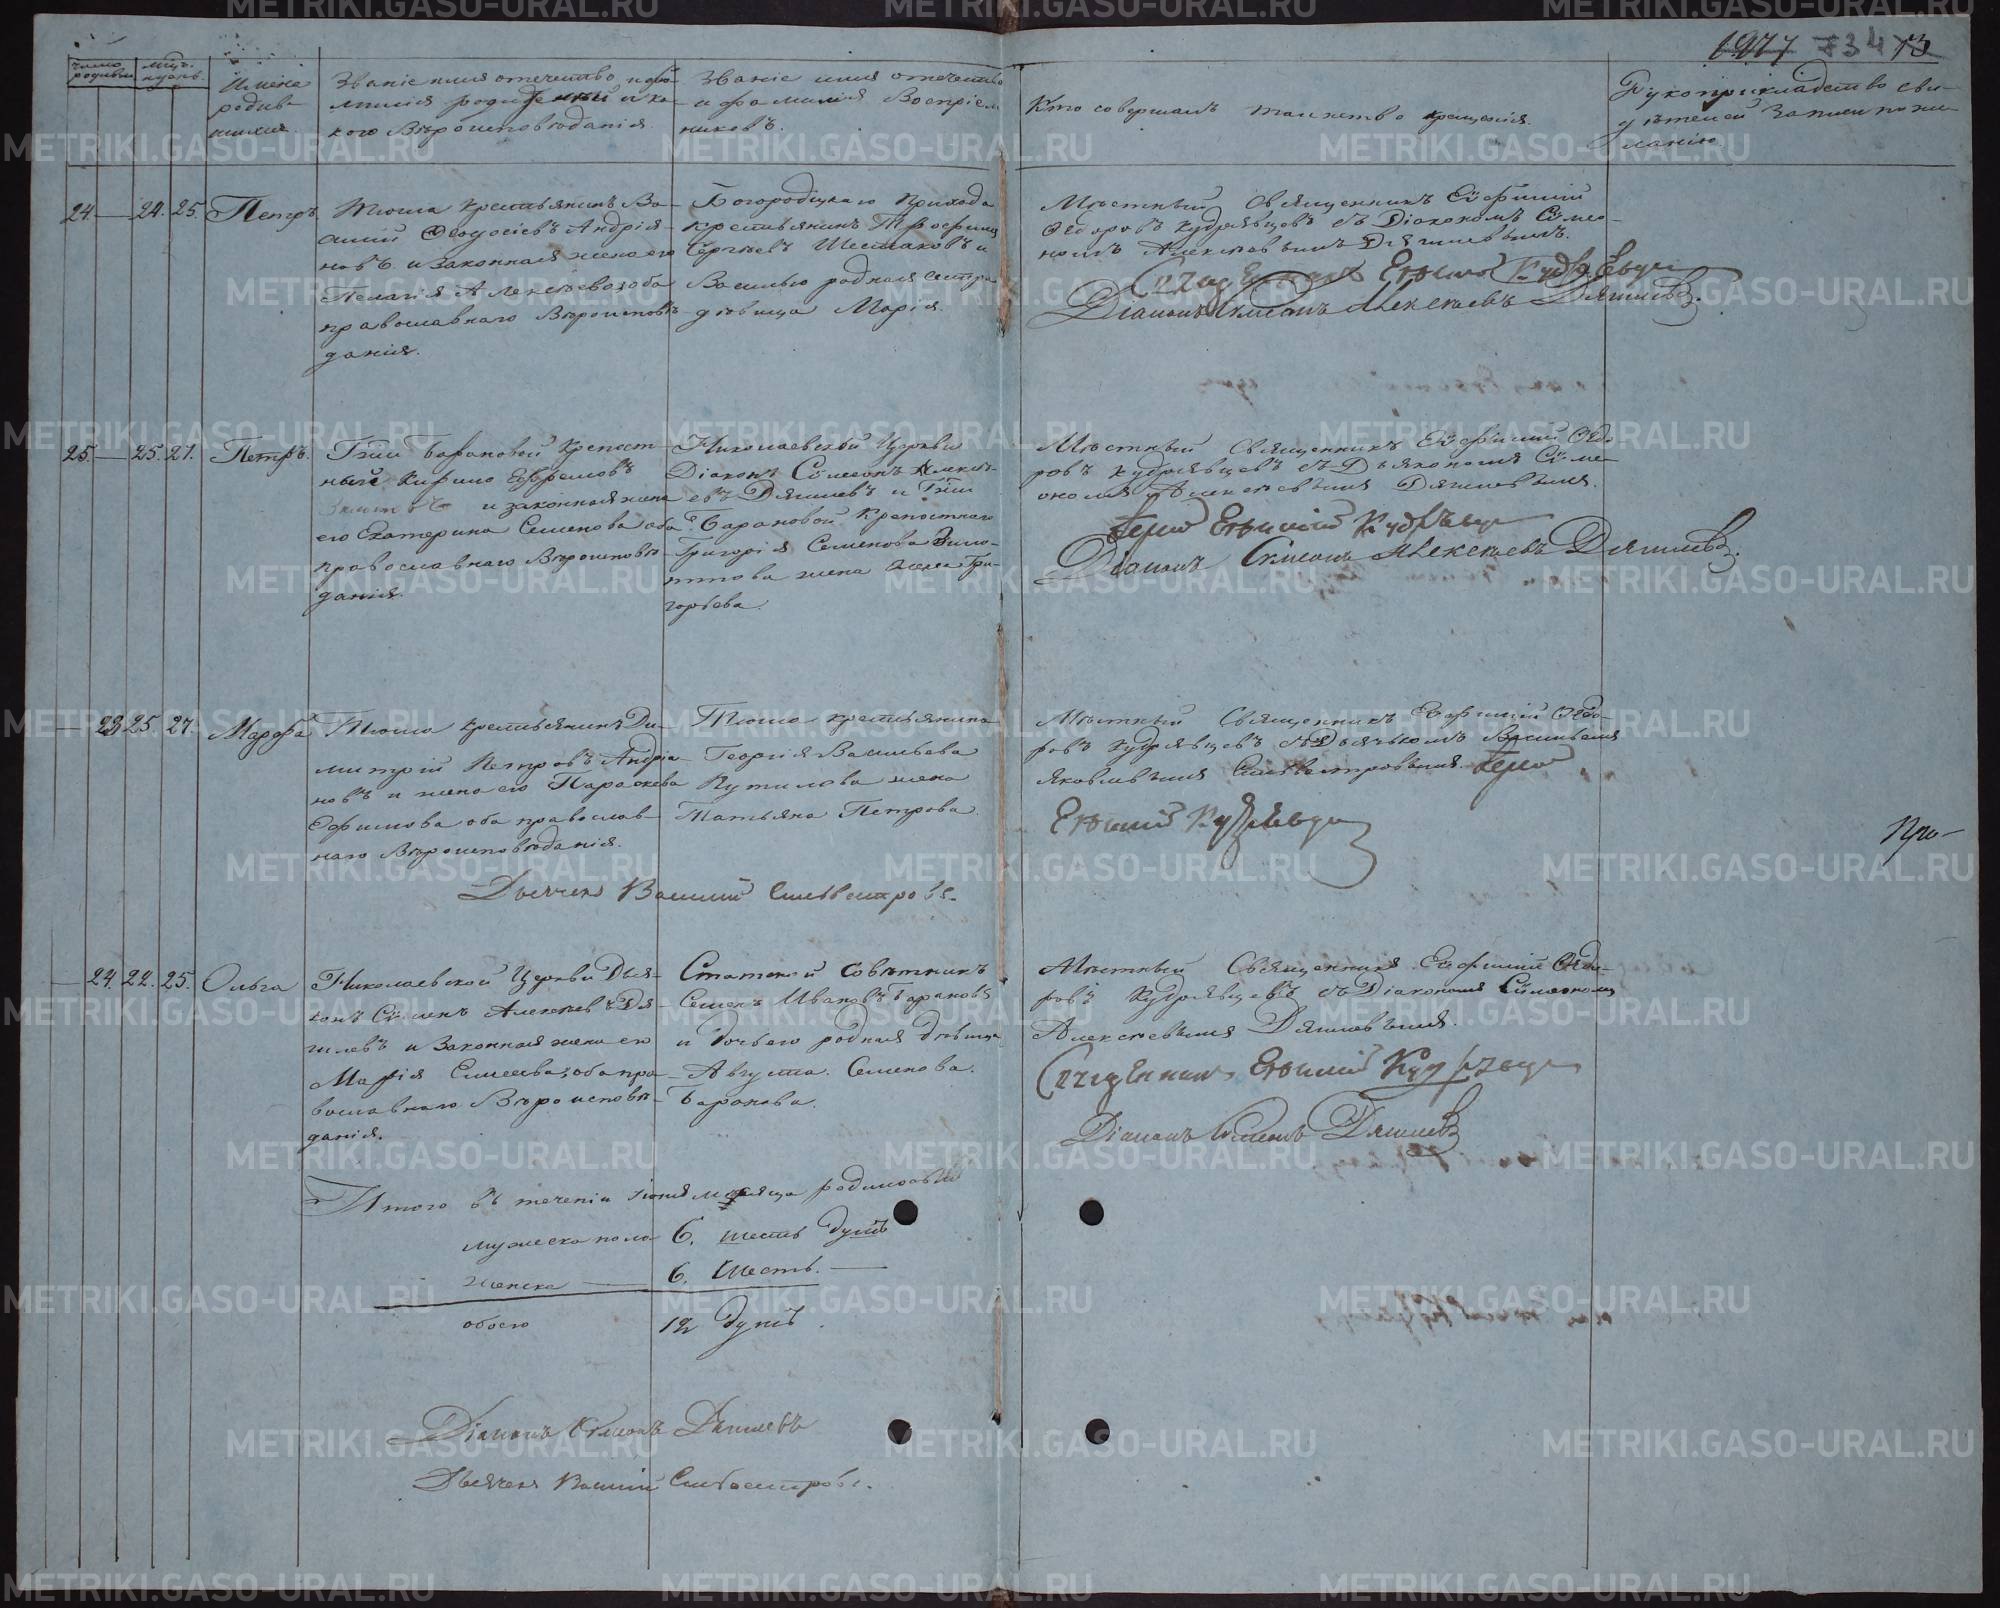 1977 734 73
число родивш.
муж. женъ.
Имена
родив-
шихся.
Званіе имя отечество и фа-
милія родителей и ка-
кого Вѣроисповѣданія.
Званіе имя отечество
и фамилія Воспріем-
никовъ.
Кто совершалъ таинство крещенія.
Рукоприкладство сви-
дѣтелей Записи по же-
ланію.
24. — 24. 25. Петръ
крестьянинъ Ва-
силій Ѳеодосіевъ Андрія-
новъ и законная жена его
Пелагія Алексѣева, оба
православнаго Вѣроисповѣ-
данія.
Богородіцкаго Прихода
крестьянинъ Трофимъ
Сергѣевъ Шестаковъ и
Василью родная сестра
дѣвица Марія.
Мѣстный Священникъ Евфимій
Ѳедоровъ Кудрявцевъ съ Діакономъ Сѵмео-
номъ Алексѣевымъ Дягилевымъ.
Священникъ Евѳимій Кудрявцевъ
Діаконъ Сѵмеонъ Алексѣевъ Дягилевъ.
25. — 25. 27. Петръ.
Гжи Барановой Крепост-
ный Ефремовъ
и законная жена
его Екатерина Семенова оба
православнаго Вѣроисповѣ-
данія.
Николаевской Церкви
Діаконъ Сѵмеонъ Алексѣ-
евъ Дягилевъ и Гжи
Барановой Крепостнаго
Григорія Семенова
жена Гри-
горьева.
Мѣстный Священникъ Евфимій Ѳедо-
ровъ Кудрявцевъ съ Дьякономъ Сѵме-
ономъ Алексѣевымъ Дягилевымъ.
Іерей Евѳимій Кудрявцевъ
Діаконъ Сѵмеонъ Алексѣевъ Дягилевъ.
— 23 25. 27. Марфа
крестьянинъ Ди-
митрій Петровъ Андріа-
новъ и жена его Параскева
Ефимова оба православ-
наго Вѣроисповѣданія.
крестьянина
Георгія Васильева
Путилова жена
Татьяна Петрова.
Мѣстный Священникъ Евфимій Ѳедо-
ровъ Кудрявцевъ съ Дьячькомъ Васильемъ
Яковлевымъ Сильвестровымъ. Іерей
Евѳимій Кудрявцевъ
Дьячекъ Василій Сильвестровъ.
Про-
— 24. 22. 25. Ольга
Николаевской Церкви Дья-
конъ Сѵменъ Алексѣевъ Дя-
гилевъ и Законная жена его
Марія оба пра-
вославнаго Вѣроисповѣ-
данія.
Статской Совѣтникъ
Семенъ Ивановъ Барановъ
и дочь его родная дѣвица
Августа Семенова
Баранова.
Мѣстный Священникъ Евфимій Ѳедо-
ровъ Кудрявцевъ съ Діакономъ Сѵмеономъ
Алексѣевымъ Дягилевымъ.
Священникъ Евѳимій Кудрявцевъ
Діаконъ Сѵмеонъ Дягилевъ
Итого въ теченіи Іюня мѣсяца родилось
мужеска пола 6. шесть душъ
женска — 6. шесть. —
обоего 12 душъ.
Діаконъ Сѵмеонъ Дягилевъ
Дьячекъ Василій Сильвестровъ.